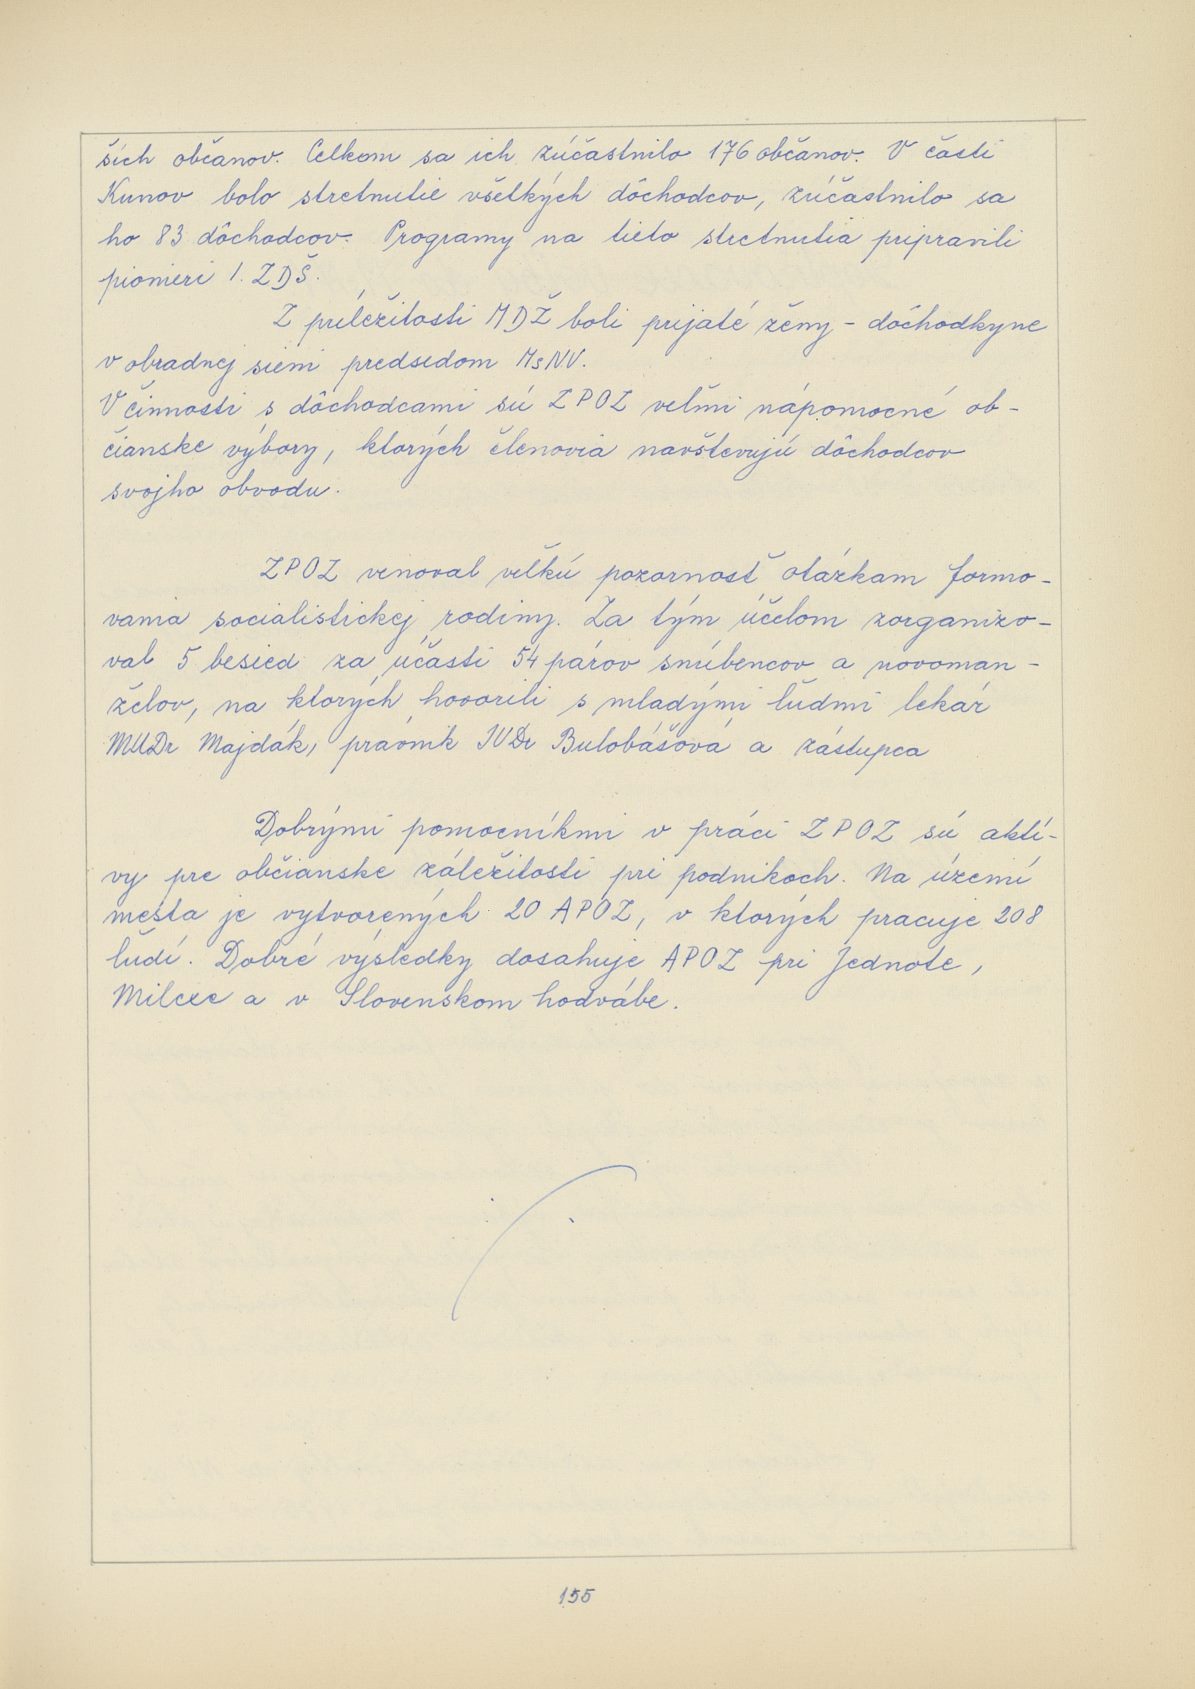 ších občanov. Celkom sa ich zúčastnilo 176 občanov. V časti
Kunov bolo stretnutie všetkých dôchodcov, zúčastnilo sa
ho 83 dôchodcov. Programy na tieto stretnutia pripravili
pionieri 1. ZDŠ.
Z príležitosti MDŽ boli prijaté ženy - dôchodkyne
v obradnej sieni predsedom MsNV.
V činnosti s dôchodcami sú ZPOZ veľmi nápomocné ob-
čianske výbory, ktorých členovia navštevujú dôchodcov
svojho obvodu.
ZPOZ venoval veľkú pozornosť otázkam formo-
vania socialistickej rodiny. Za tým účelom zorganizo-
val 5 besied za účasti 54 párov snúbencov a novoman-
želov, na ktorých hovorili s mladými ľuďmi lekár
MUDr Majdák, právnik JUDr Bulobášová a zástupca
Dobrými pomocníkmi v práci ZPOZ sú aktí-
vy pre občianske záležitosti pri podnikoch. Na území
mesta je vytvorených 20 APOZ, v ktorých pracuje 208
ľudí. Dobré výsledky dosahuje APOZ pri Jednote,
Milexe a v Slovenskom hodvábe.
155